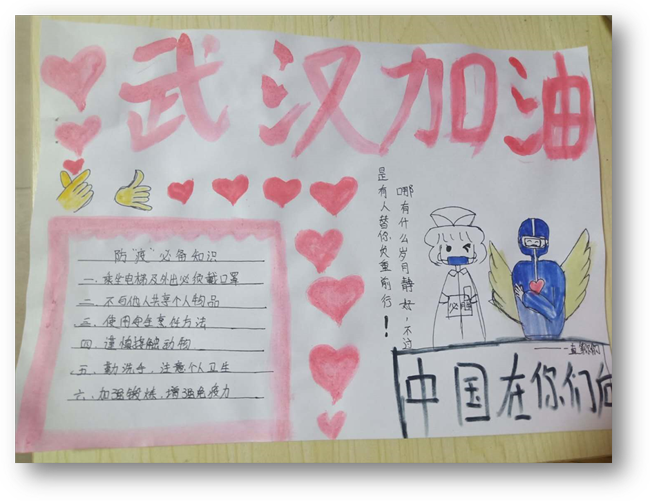 武汉加油
哪有什么岁月静好，不过
是有人替你负重前行！
防“疫”必备知识
一、乘坐电梯及外出必须戴口罩
二、不与他人共享个人物品
三、使用安全烹饪方法
四、谨慎接触动物
五、勤洗手，注意个人卫生
六、加强锻炼，增强免疫力
必胜
中国在你们后